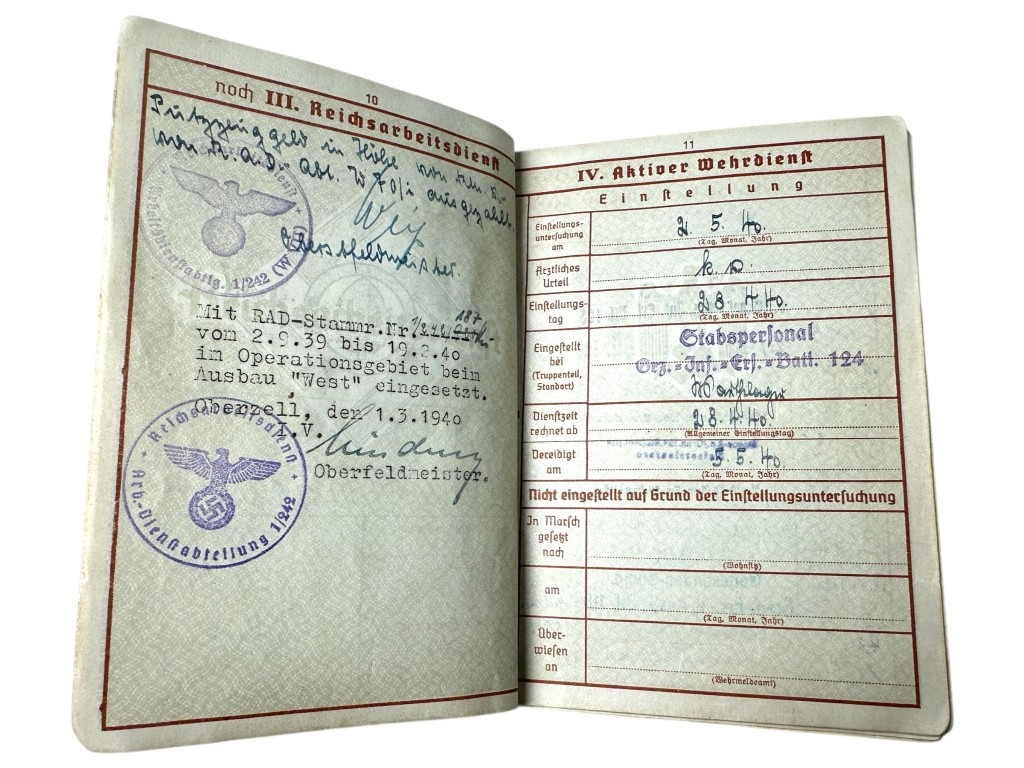 10
noch III. Reichsarbeitsdienst
Putzzeuggeld in Höhe von
von R.A.D. Abt. ausgezahlt.
Oberstfeldmeister.
1/242 (W
Mit RAD-Stammr.Nr 1/242 187
vom 2.9.39 bis 19.2.40
im Operationsgebiet beim
Ausbau "West" eingesetzt.
Oberzell, den 1.3.1940
I.V.
Oberfeldmeister.
Reichsarbeitsdienst
Arb.-Dienstabteilung 1/242
11
IV. Aktiver Wehrdienst
Einstellung
Einstellungs-
untersuchung
am
2. 5. 40.
(Tag, Monat, Jahr)
Ärztliches
Urteil
k. v.
Einstellungs-
tag
28. 4. 40.
(Tag, Monat, Jahr)
Eingestellt
bei
(Truppenteil,
Standort)
Stabspersonal
Grz.-Inf.-Ers.-Batl. 124
Warthelager
Dienstzeit
rechnet ab
28. 4. 40.
(Allgemeiner Einstellungstag)
Vereidigt
am
5. 5. 40.
(Tag, Monat, Jahr)
Nicht eingestellt auf Grund der Einstellungsuntersuchung
In Marsch
gesetzt
nach
(Wohnsitz)
am
(Tag, Monat, Jahr)
Über-
wiesen
an
(Wehrmeldeamt)